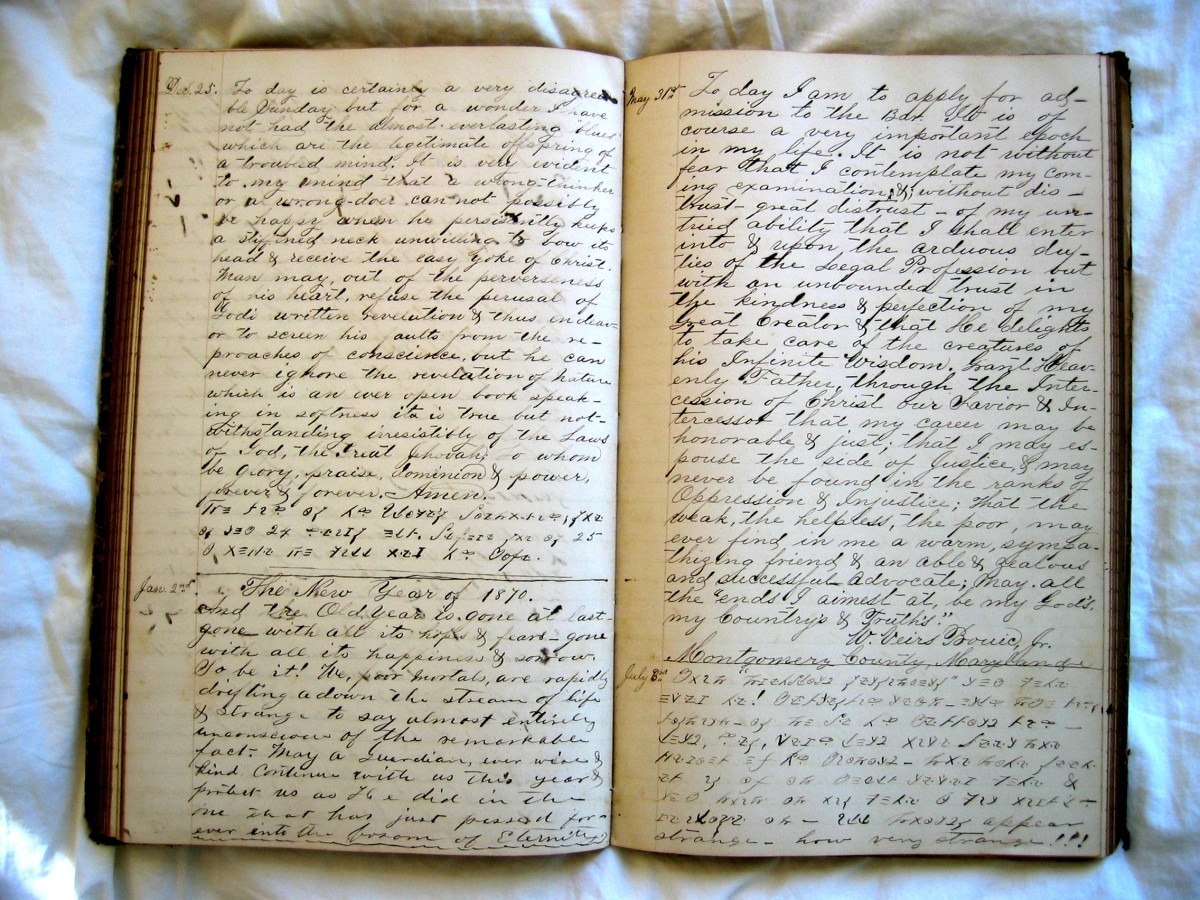 Dec. 25. To day is certainly a very disagreea
ble Sunday but for a wonder I have
not had the almost everlasting "blues"
which are the legitimate offspring of
a troubled mind. It is very evident
to my mind that a wrong-thinker
or a wrong-doer can not possibly
be happy when he persistently keeps
a stiffined neck unwilling to bow its
head & receive the easy yoke of Christ.
Man may, out of the perverseness
of his heart, refuse the perusal of
God's written revelation & thus endeav-
or to screen his faults from the re-
proaches of conscience, but he can
never ignore the revelation of Nature
which is an ever open book speak-
ing in softness it is true but not-
withstanding irresistibly of the Laws
of God, the Great Jehovah; to whom
be Glory, praise, Dominion & power,
forever & forever. Amen.
24
25
Jan. 2nd The New Year of 1870.
And the Old Year is gone at last-
gone with all its hopes & fears - gone
with all its happiness & sorrow.
So be it! We, poor mortals, are rapidly
drifting adown the stream of life
& strange to say almost entirely
unconscious of the remarkable
fact. May a Guardian, ever wise &
kind continue with us this year &
protect us as He did in the
one that has just passed for-
ever into the bosom of Eternity
May 31st To day I am to apply for ad-
mission to the Bar. It is of
course a very important epoch
in my life. It is not without
fear that I contemplate my com-
ing examination, & without dis-
trust - great distrust - of my un-
tried ability that I shall enter
into & upon the arduous du-
ties of the Legal Profession but
with an unbounded trust in
the kindness & perfection of my
Great Creator & that He delights
to take care of the creatures of
his Infinite Wisdom. Grant Heav-
enly Father, through the Inter-
cession of Christ our Savior & In-
tercessor that, my career may be
honorable & just; that I may es-
pouse the side of Justice, & may
never be found in the ranks of
Oppression & Injustice; That the
weak, the helpless, the poor, may
ever find in me a warm, sympa-
thizing friend & an able & zealous
and successful advocate; May all
the "ends I aimest at, be my God's,
my Country's & Truth's".
W. Veirs Bouic, Jr.
Montgomery County, Maryland
July 8th
&
appear
strange - how very strange!!!